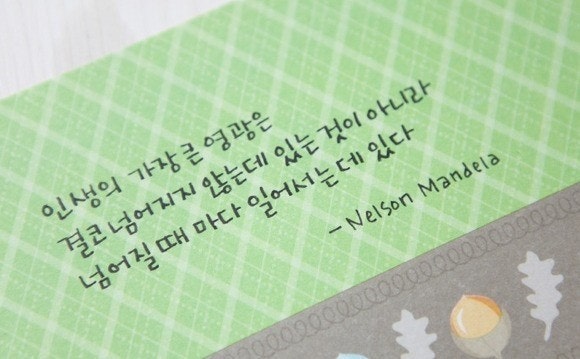 인생의 가장 큰 영광은
결코 넘어지지 않는데 있는 것이 아니라
넘어질 때 마다 일어서는데 있다
-Nelson Mandela